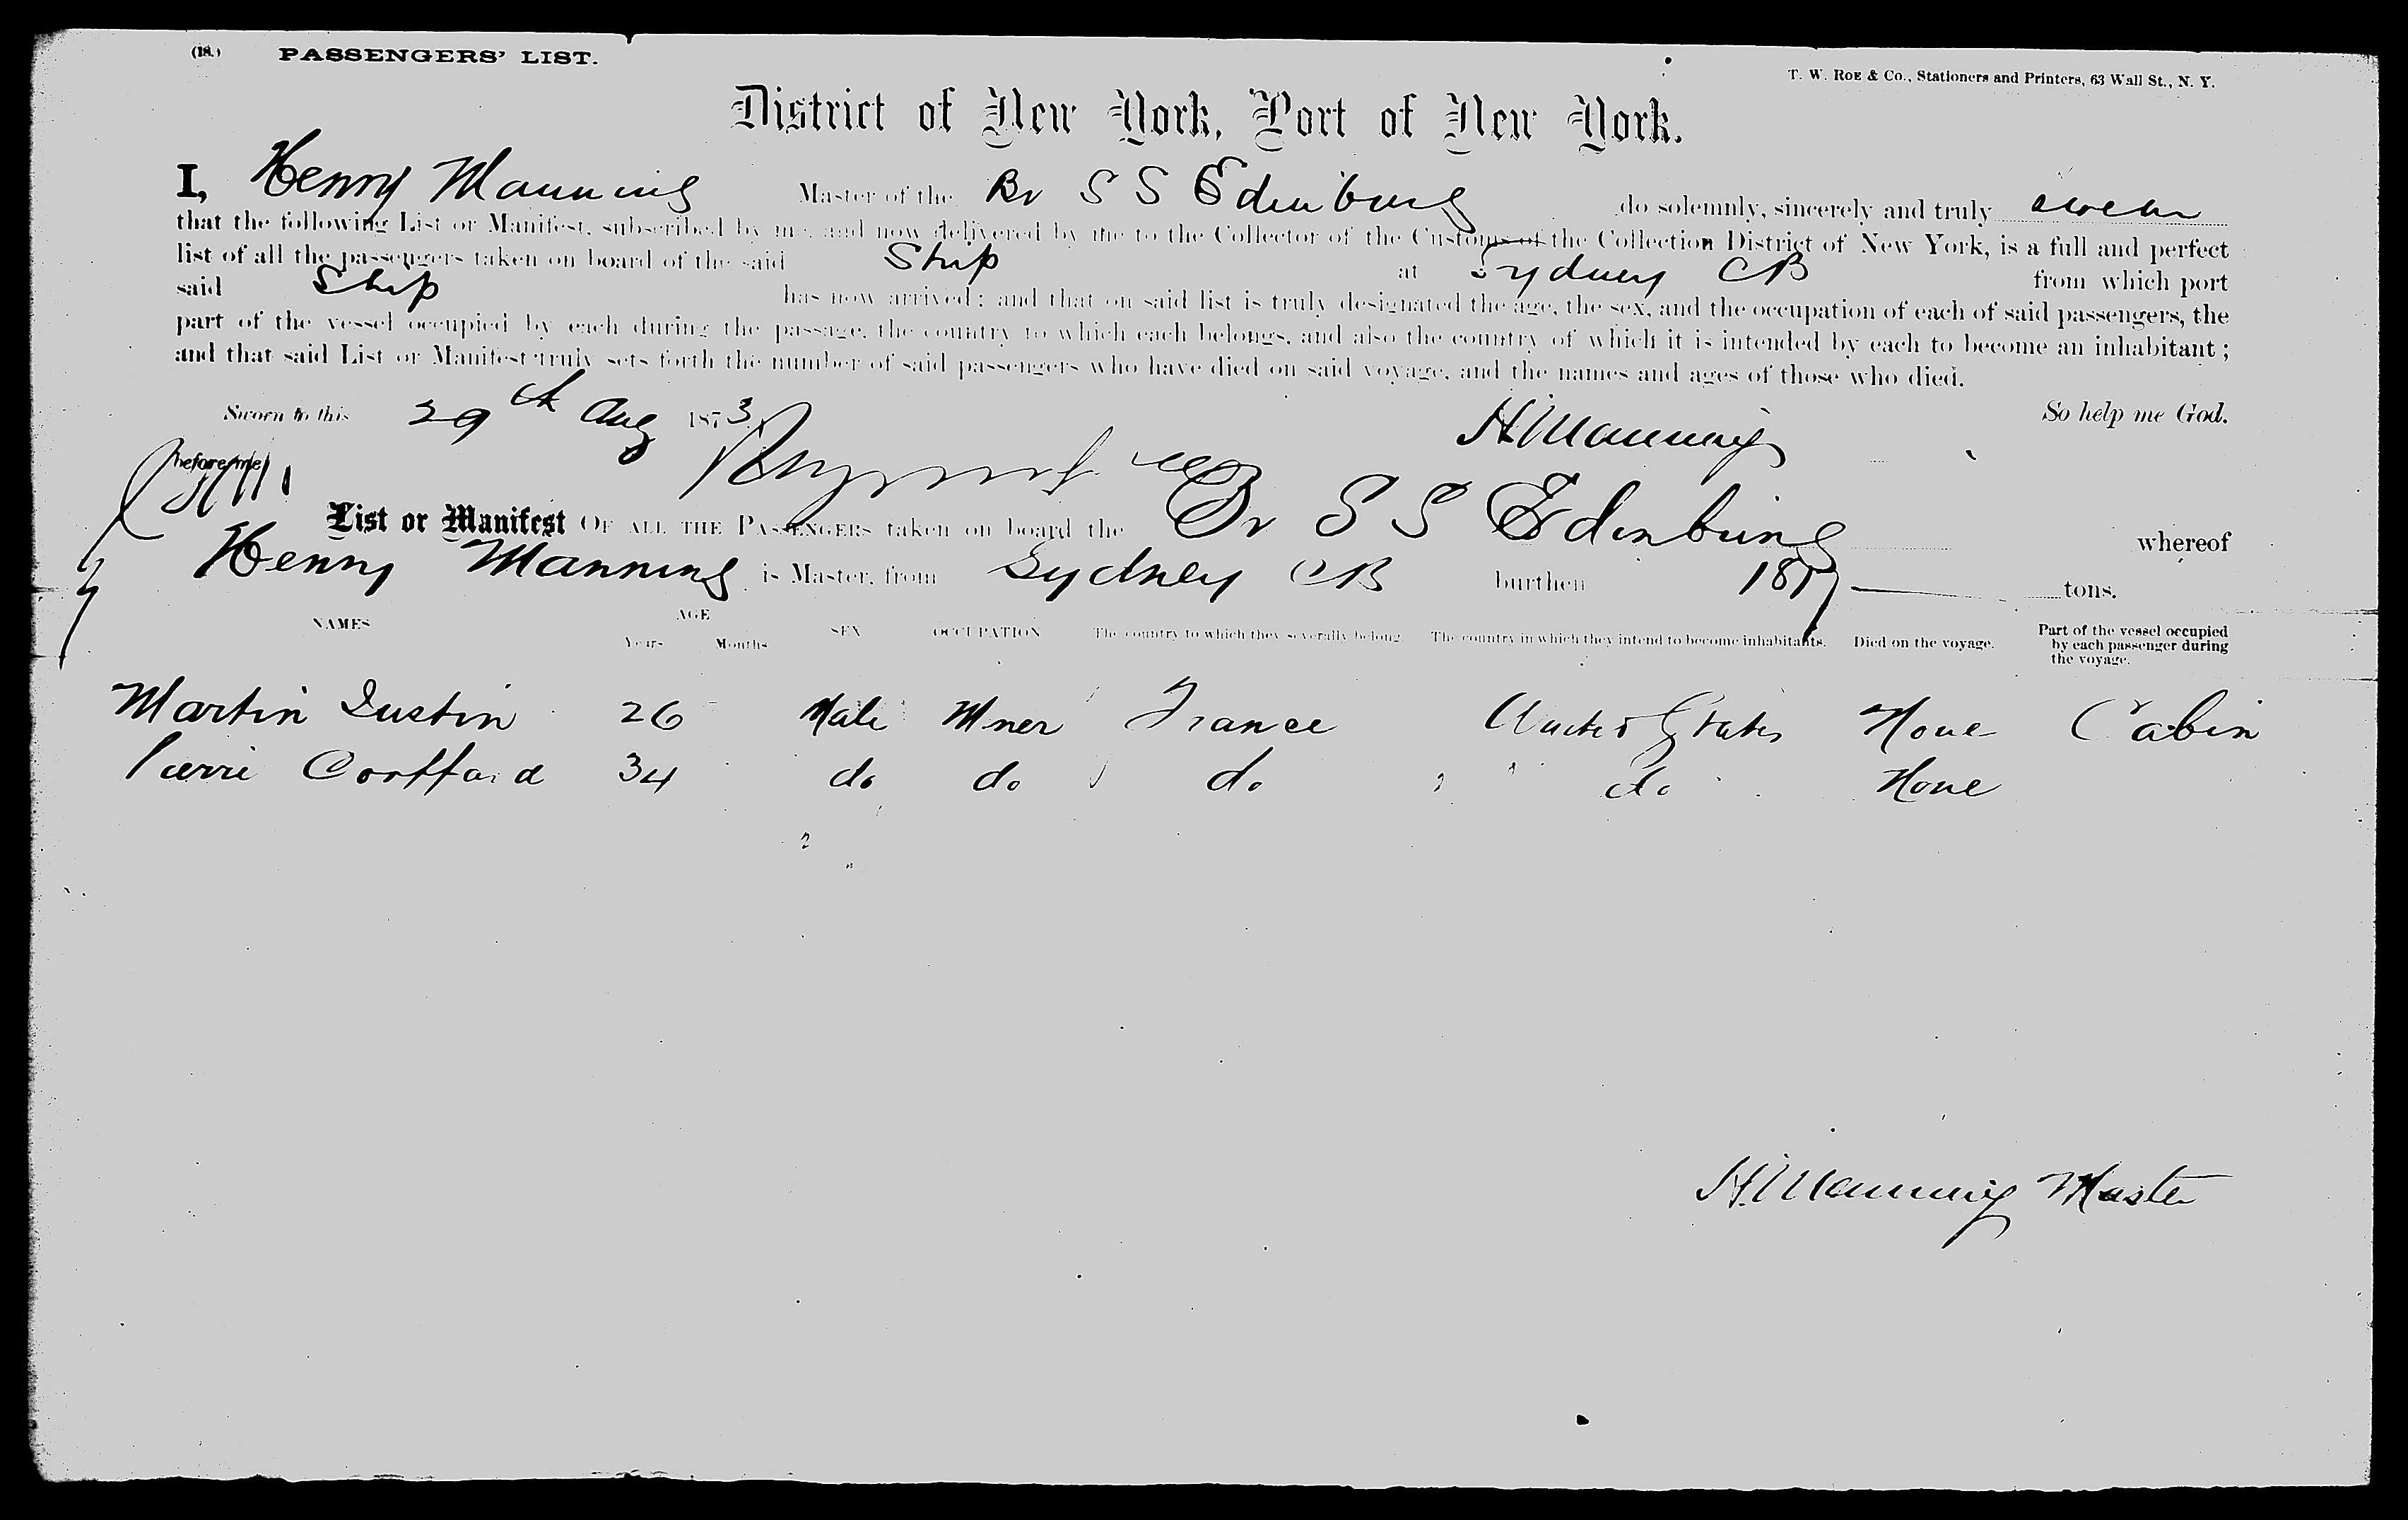 (18.) PASSENGERS' LIST.
T. W. ROE & Co., Stationers and Printers, 63 Wall St., N. Y.
District of New York, Port of New York.
I, Henry Manning Master of the Br S S Edinburg do solemnly, sincerely and truly swear
that the following List or Manifest, subscribed by me, and now delivered by me to the Collector of the Customs of the Collection District of New York, is a full and perfect
list of all the passengers taken on board of the said Ship at Sydney CB from which port
said Ship has now arrived; and that on said list is truly designated the age, the sex, and the occupation of each of said passengers, the
part of the vessel occupied by each during the passage, the country to which each belongs, and also the country of which it is intended by each to become an inhabitant;
and that said List or Manifest truly sets forth the number of said passengers who have died on said voyage, and the names and ages of those who died.
Sworn to this 29th Aug 1873 H Manning So help me God.
before me
List or Manifest OF ALL THE PASSENGERS taken on board the Br S S Edinburg whereof
Henry Manning is Master, from Sydney CB burthen tons.
NAMES AGE Years Months SEX OCCUPATION The country to which they severally belong. The country in which they intend to become inhabitants. Died on the voyage. Part of the vessel occupied by each passenger during the voyage.
Martin Justin 26 Male Miner France United States None Cabin
Pierre 34 do do do do None
H Manning Master